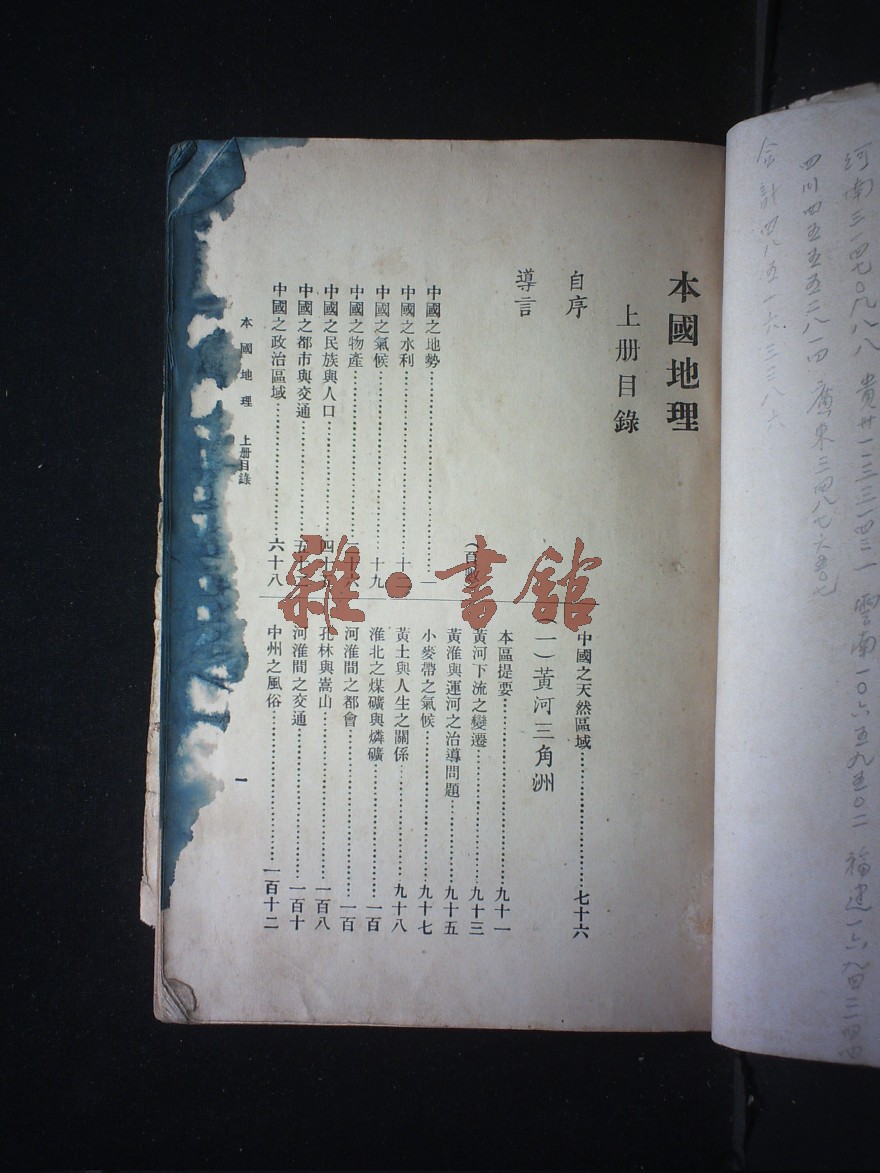 河南三一四七〇九八八　貴州一一二三三一四三一　雲南一〇六五九五〇二　福建
四川四五五五三八一四　廣東三四八七六五〇七
合計四八五一六三三八六
本國地理
上册目錄
自序
導言
中國之地勢……一
中國之水利……十
中國之氣候……十九
中國之物產……十六
中國之民族與人口……四十
中國之都市與交通……五十
中國之政治區域……六十八
中國之天然區域……七十六
(一)黃河三角洲
本區提要……九十一
黃河下流之變遷……九十三
黃淮與運河之治導問題……九十五
小麥帶之氣候……九十七
黃土與人生之關係……九十八
淮北之煤礦與燐礦……一百
河淮間之都會……一百
孔林與嵩山……一百八
河淮間之交通……一百十
中州之風俗……一百十二
本國地理　上册目錄
一
雜·書館